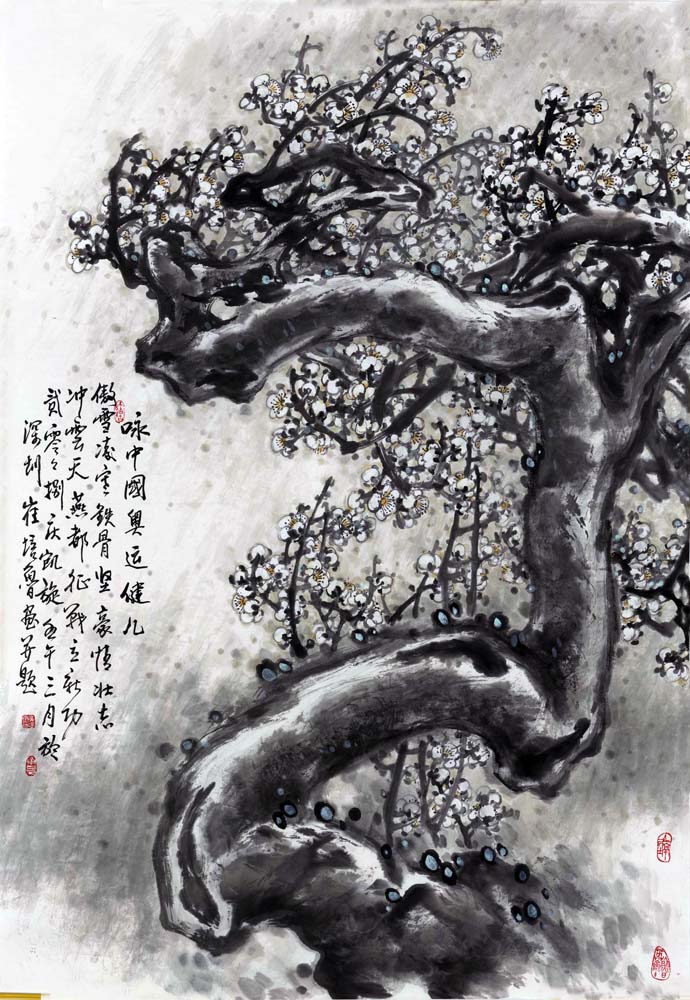 咏中國奥运健儿
傲雪凌寒鉄骨坚豪情壮志
冲雲天燕都征战立新功
贰零零捌庆凯旋壬午三月於
深圳崔培鲁画并题